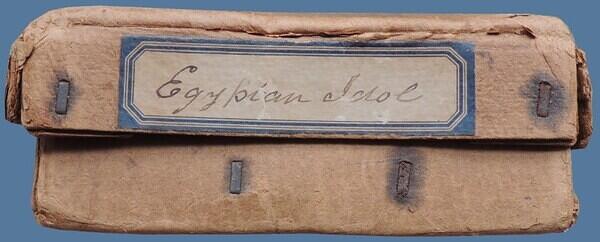 Egypian Idol